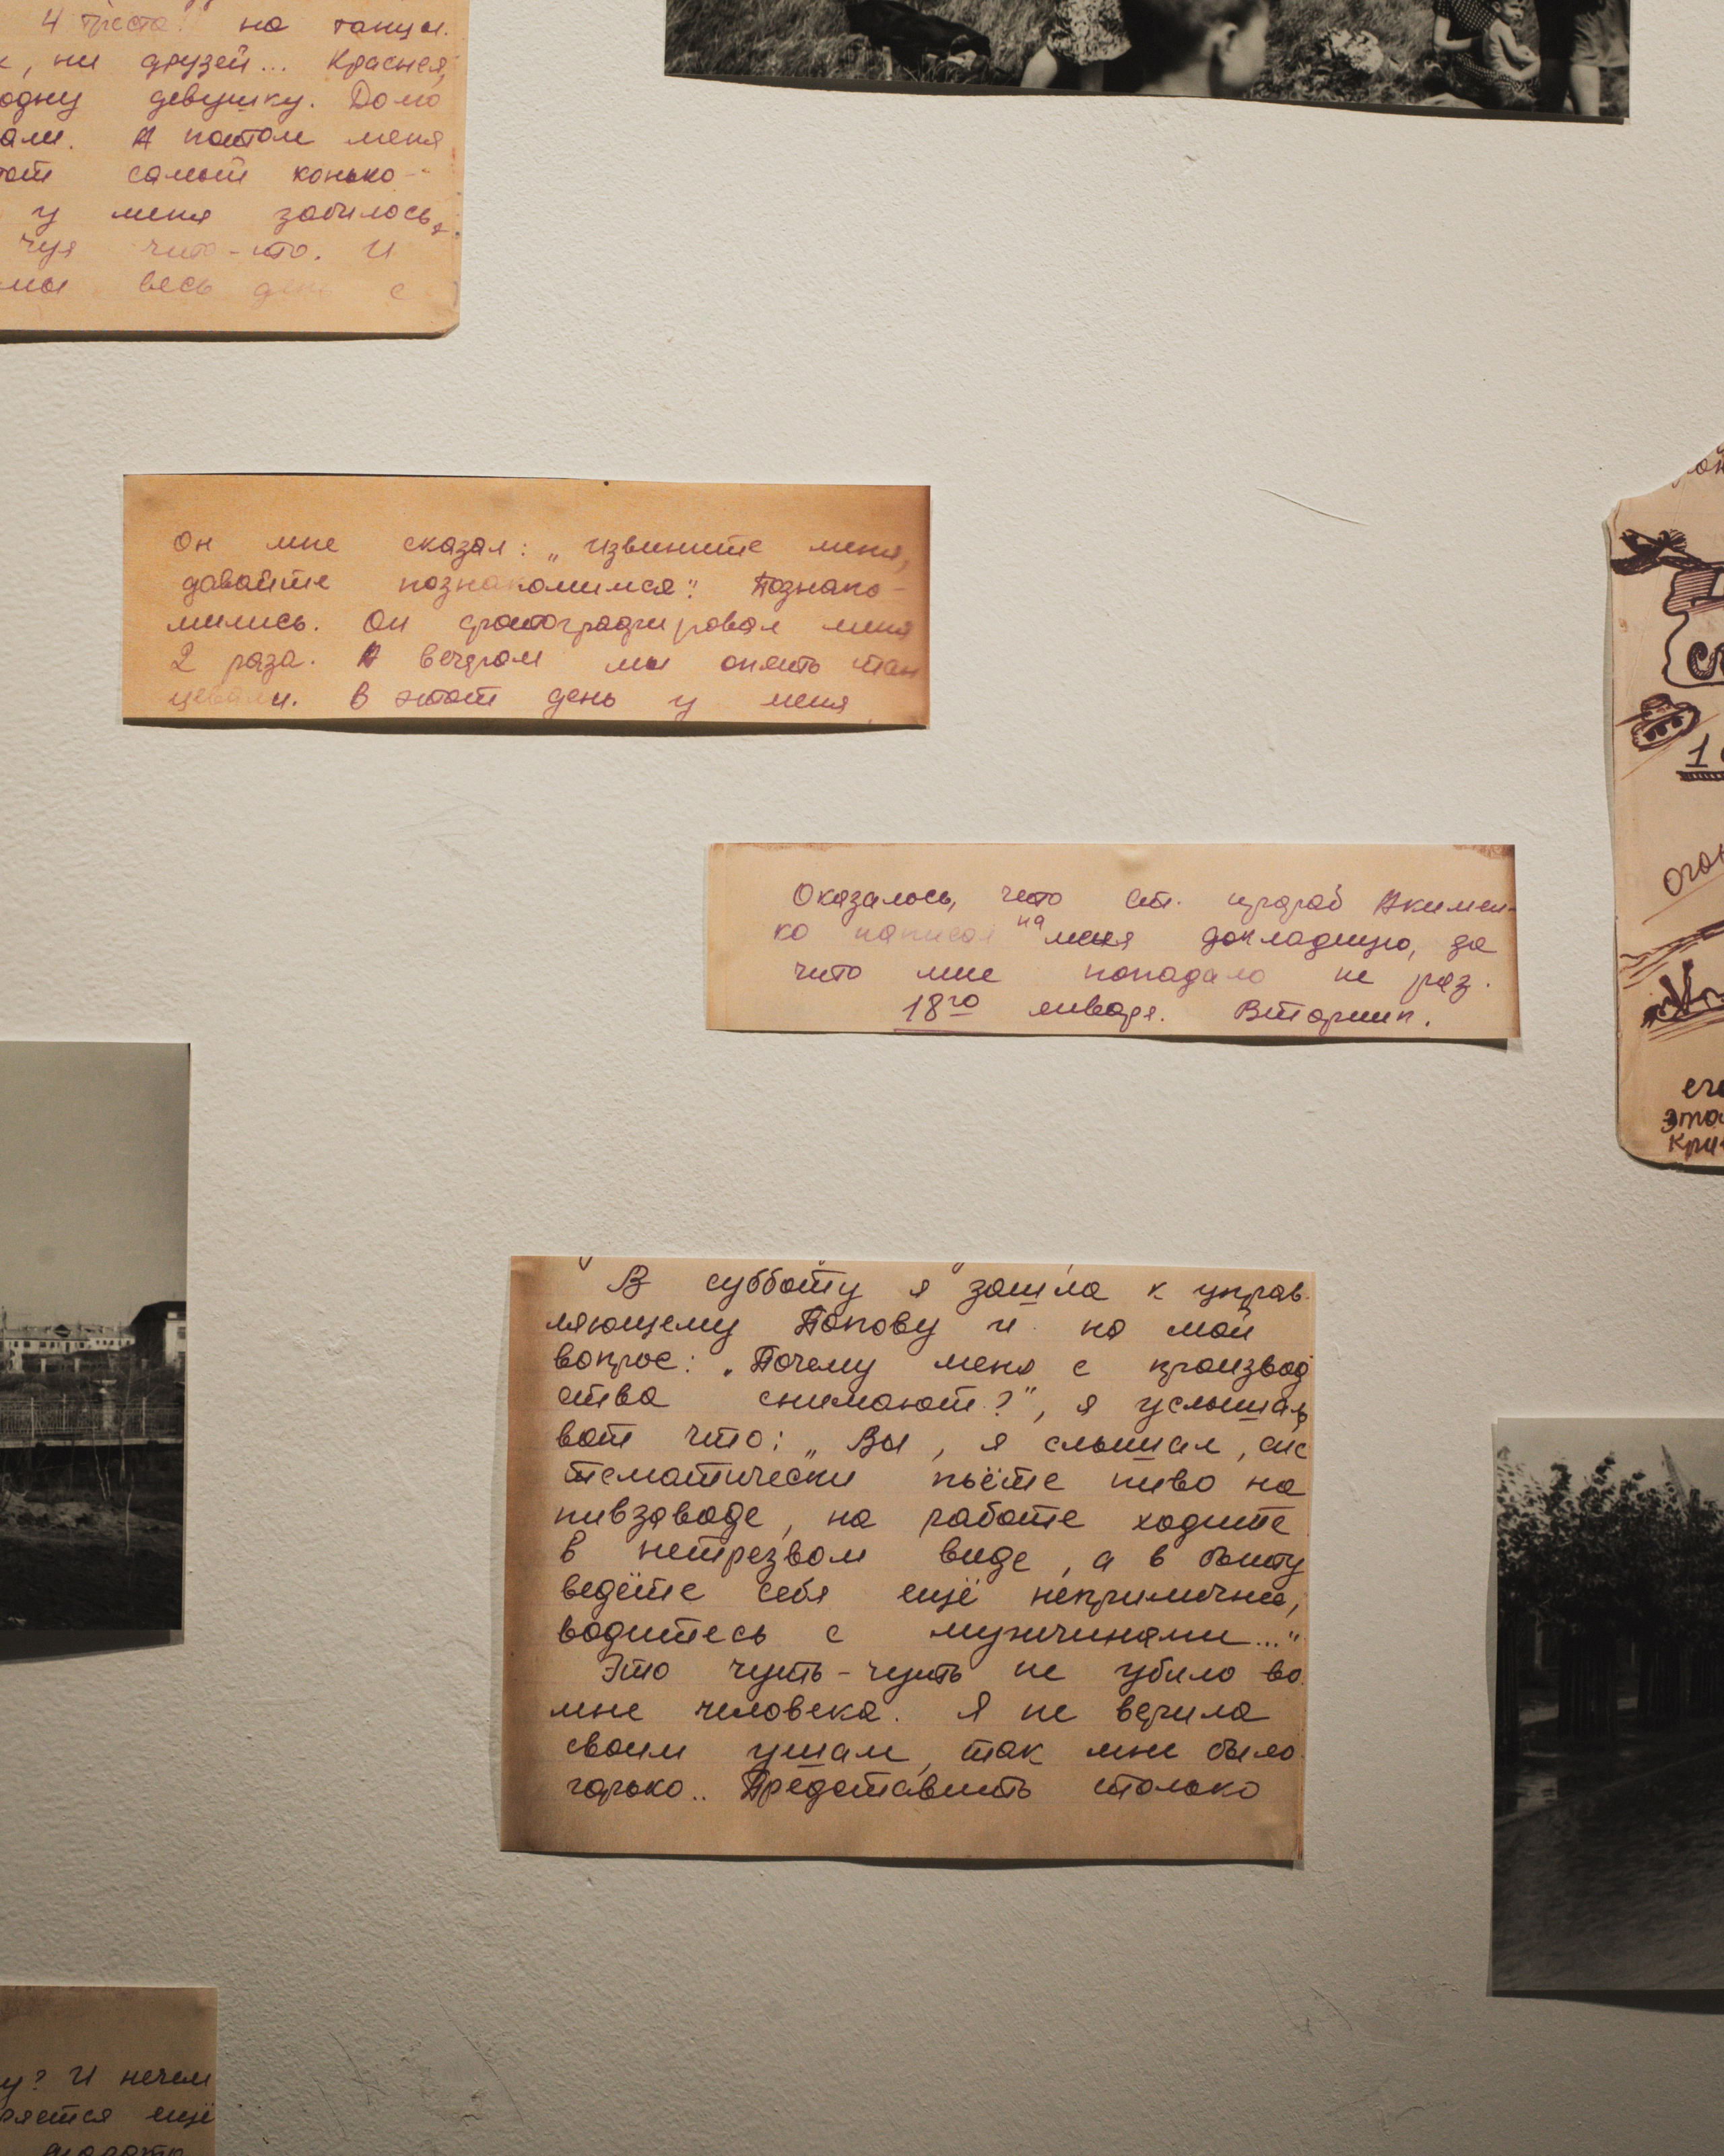 4 треста. на танцы.
, ни друзей... Краснея,
одну девушку. Домо
али. А потом меня
самый конько-
у меня забилось,
чуя что-то. И
мы весь день с
Он мне сказал: „Извините меня,
давайте познакомимся". Познако-
мились. Он фотографировал меня
2 раза. А вечером мы опять тан
цевали. В этот день у меня
Оказалось, что ст. прораб Акимен-
ко написал на меня докладную, за
что мне попадало не раз.
18го января. Вторник.
1
его
В субботу я зашла к управ-
ляющему Попову и на мой
вопрос: „Почему меня с производ
ства снимают?", я услышала
вот что: „Вы, я слышал, сис
тематически пьёте пиво на
пивзаводе, на работе ходите
в нетрезвом виде, а в быту
ведёте себя ещё неприлично,
водитесь с мужчинами..."
Это чуть-чуть не убило во
мне человека. Я не верила
своим ушам, так мне было
горько.. Представить столько
у? И нечем
ряется ещё